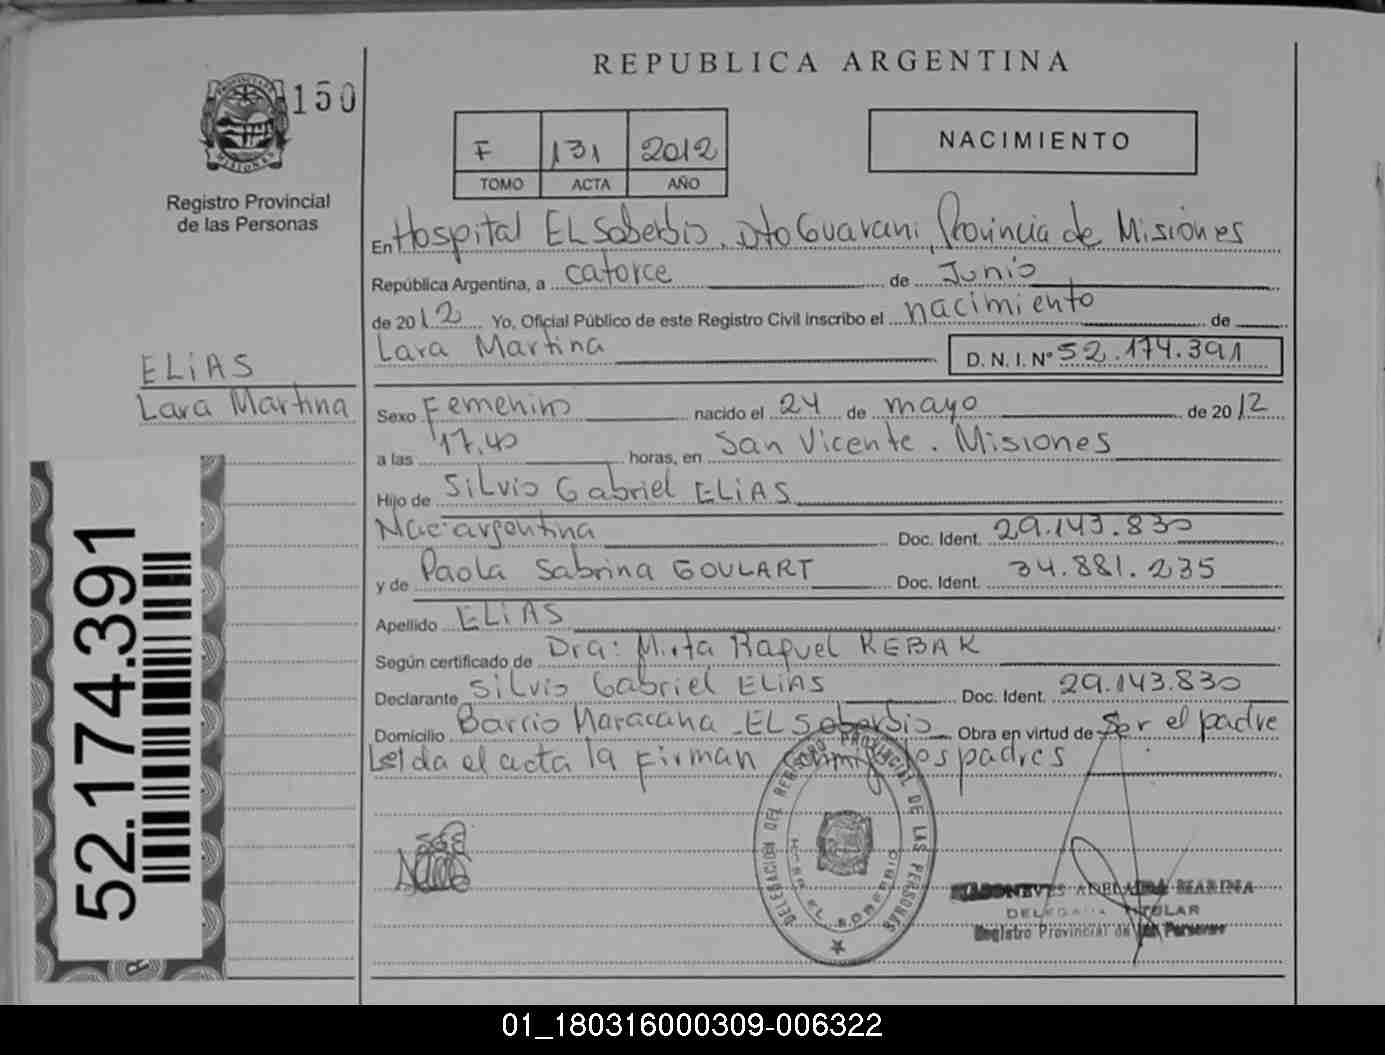 REPUBLICA ARGENTINA
150
PROVINCIA DE
MISIONES
Registro Provincial
de las Personas
F 131 2012
TOMO ACTA AÑO
NACIMIENTO
En Hospital EL Soberbio, Dto Guarani, Provincia de Misiones
República Argentina, a catorce de Junio
de 2012 Yo, Oficial Público de este Registro Civil inscribo el nacimiento de
Lara Martina D. N. I. Nº 52.174.391
ELiAS
Lara Martina
Sexo Femenino nacido el 24 de mayo de 2012
a las 17.40 horas, en San Vicente. Misiones
Hijo de Silvio Gabriel ELiAS
Nac. argentina Doc. Ident. 29.143.830
y de Paola Sabrina GOULART Doc. Ident. 34.881.235
Apellido ELiAS
Según certificado de Dra: Mirta Raquel REBAK
Declarante Silvio Gabriel ELiAS Doc. Ident. 29.143.830
Domicilio Barrio Maracana - EL Soberbio Obra en virtud de Ser el padre
Leida el acta la firman conmigo los padres
52.174.391
DELEGACION DEL REGISTRO PROVINCIAL DE LAS PERSONAS
EL SOBERBIO
ADELAIDA MARINA
DELEGADA TITULAR
Registro Provincial de las Personas
01_180316000309-006322